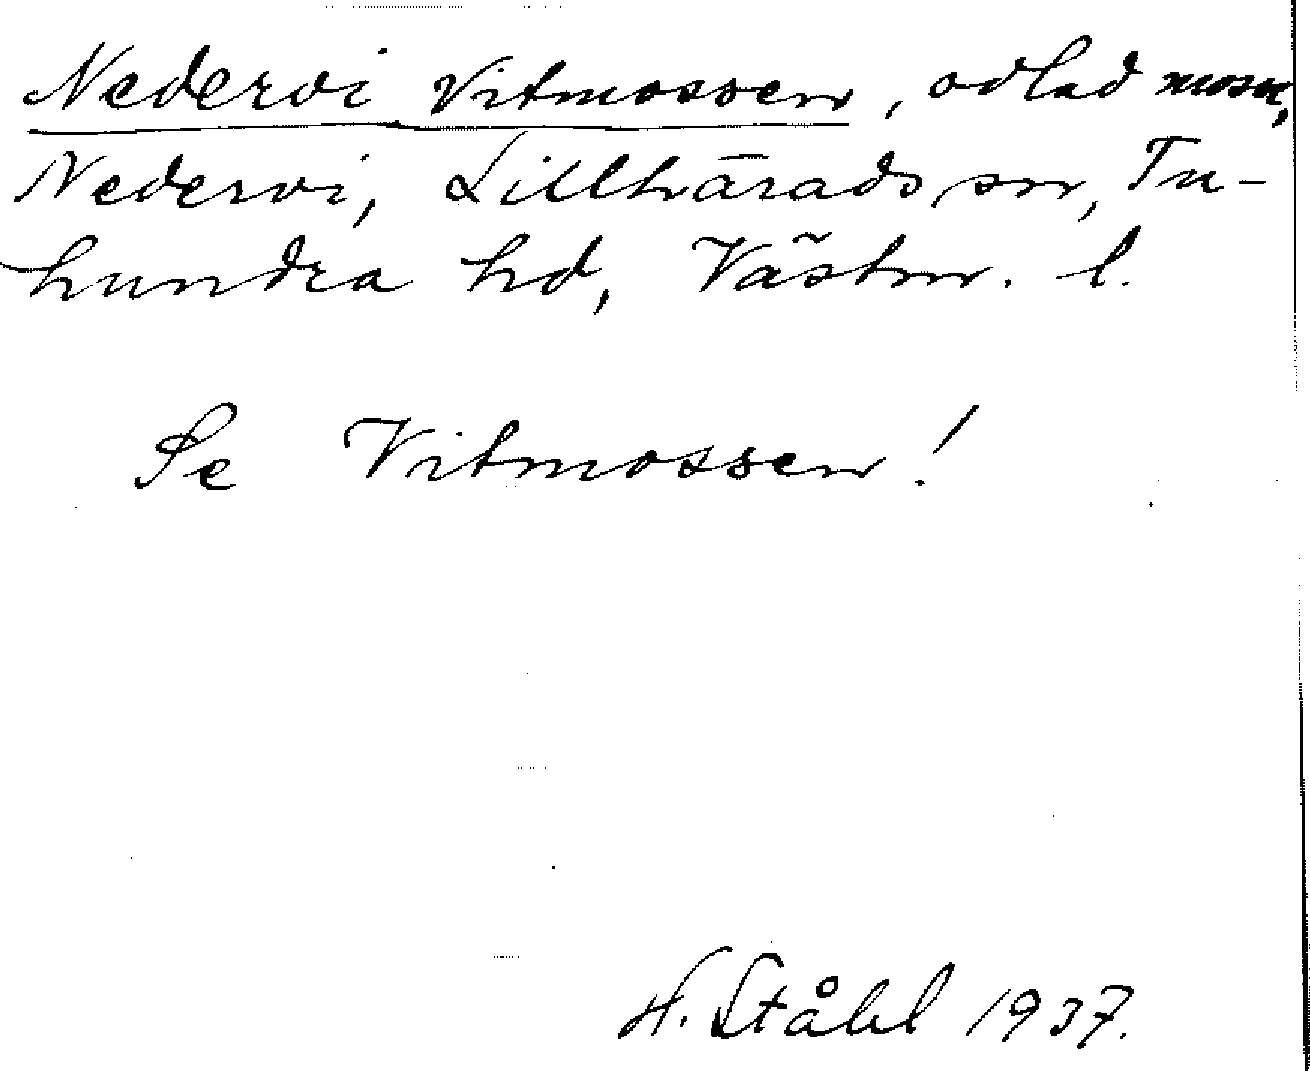 Nedervi Vitmossen, odlad mosse,
Nedervi, Lillhärads sn, Tu-
hundra hd, Västm. l.
Se Vitmossen!
H. Ståhl 1937.